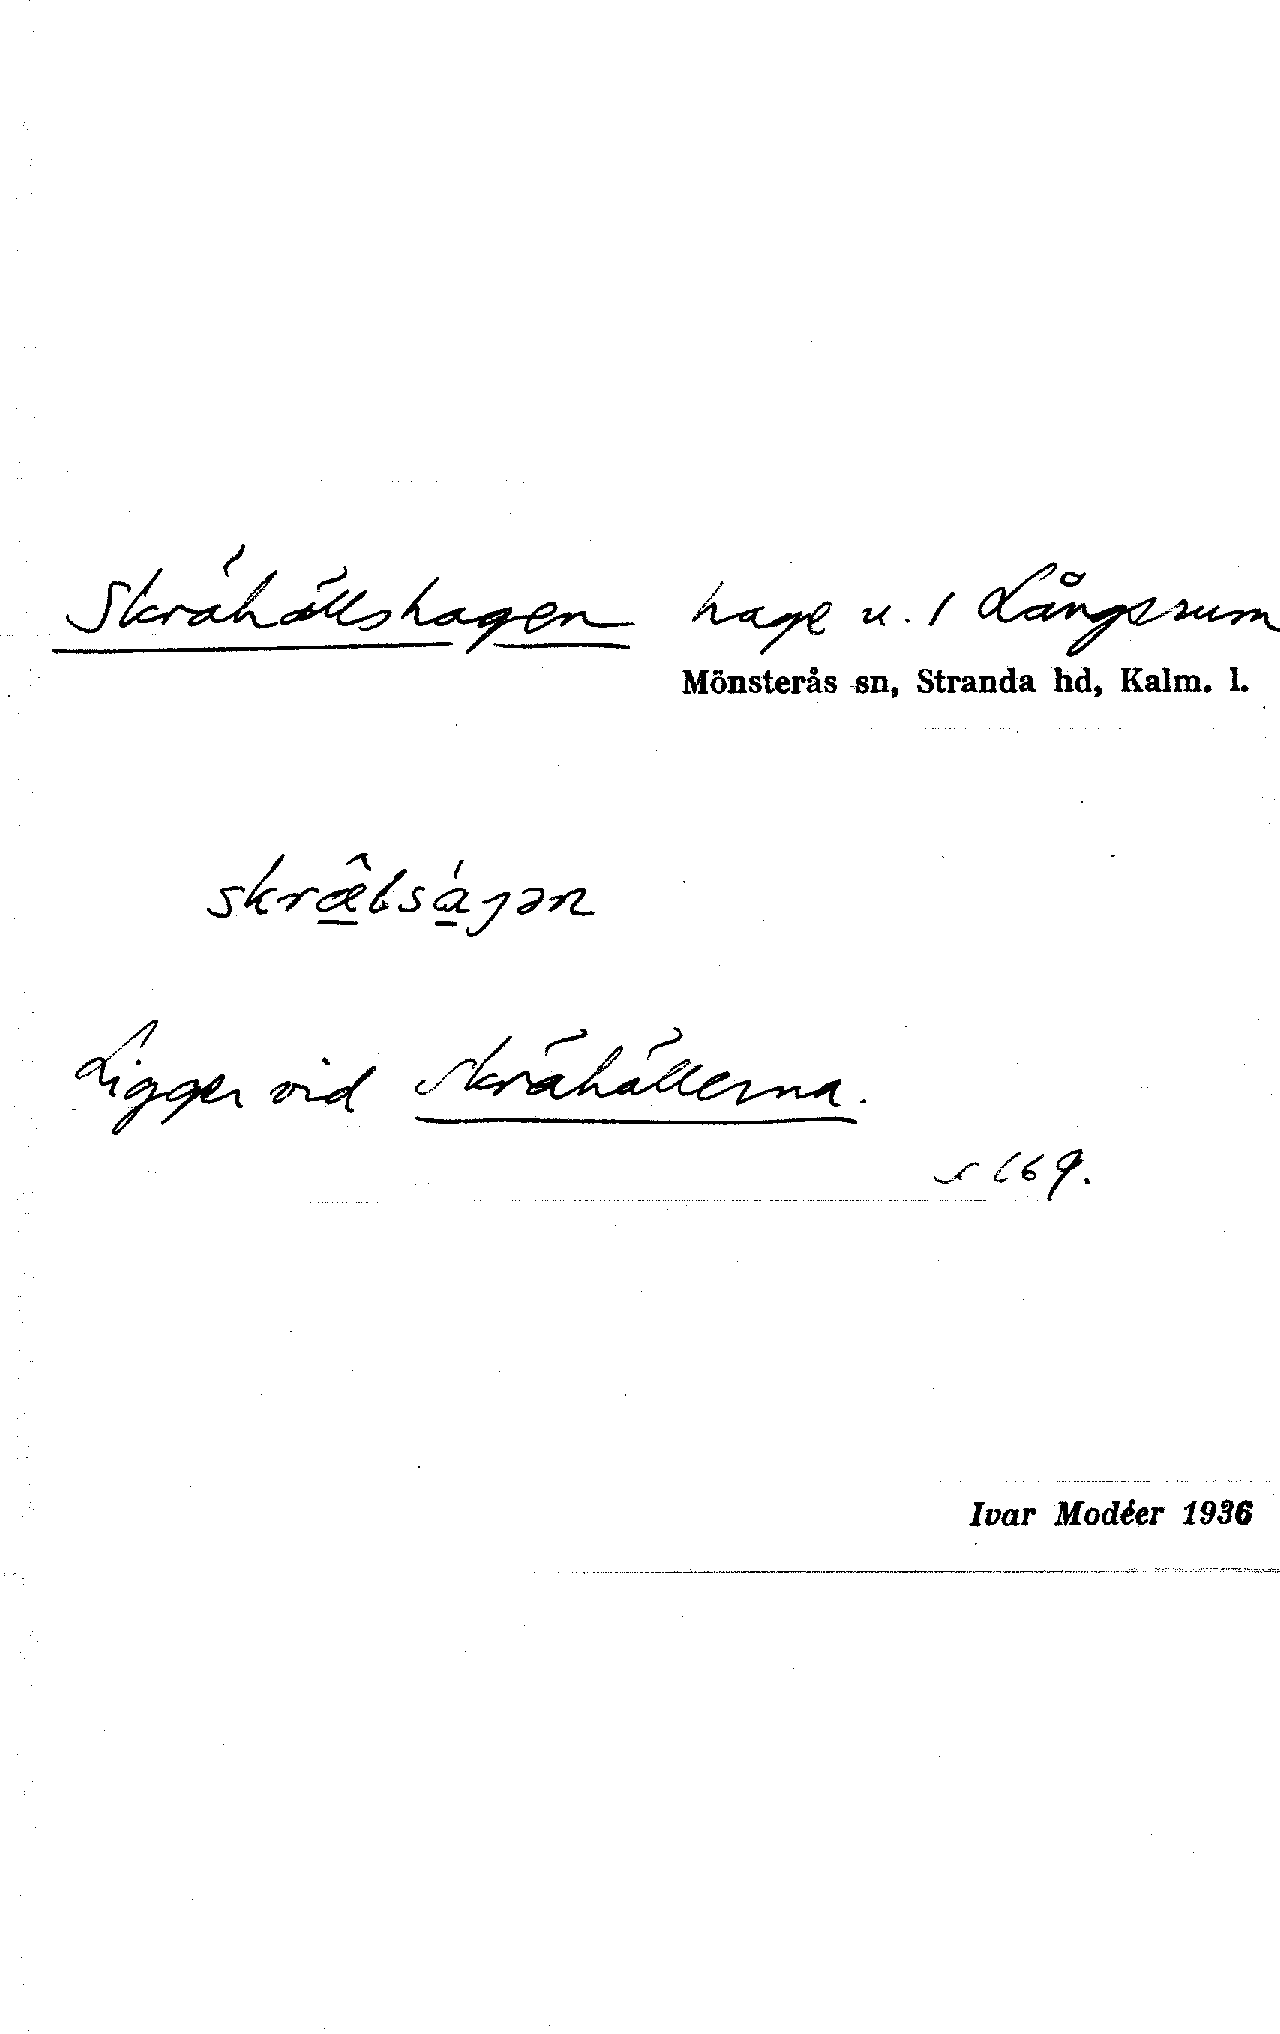 Skrähällshagen hage u. 1 Långsrum
Mönsterås sn, Stranda hd, Kalm. l.
Ligger vid Skrähällerna.
s 169.
Ivar Modéer 1936